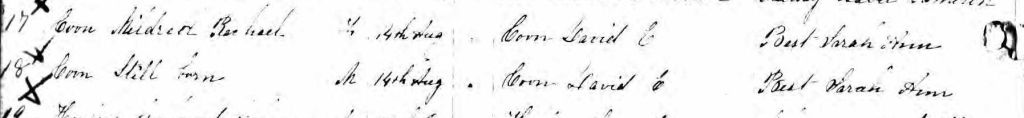 17 Coon Mildred Rachael F 14th Aug. Coon David E Best Sarah Ann
18 Coon Still born M 14th Aug. Coon David E Best Sarah Ann